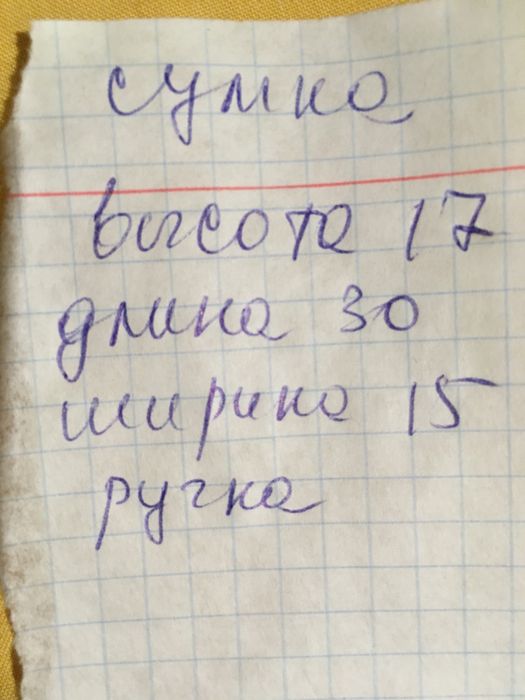 сумка
высота 17
длина 30
ширина 15
ручка